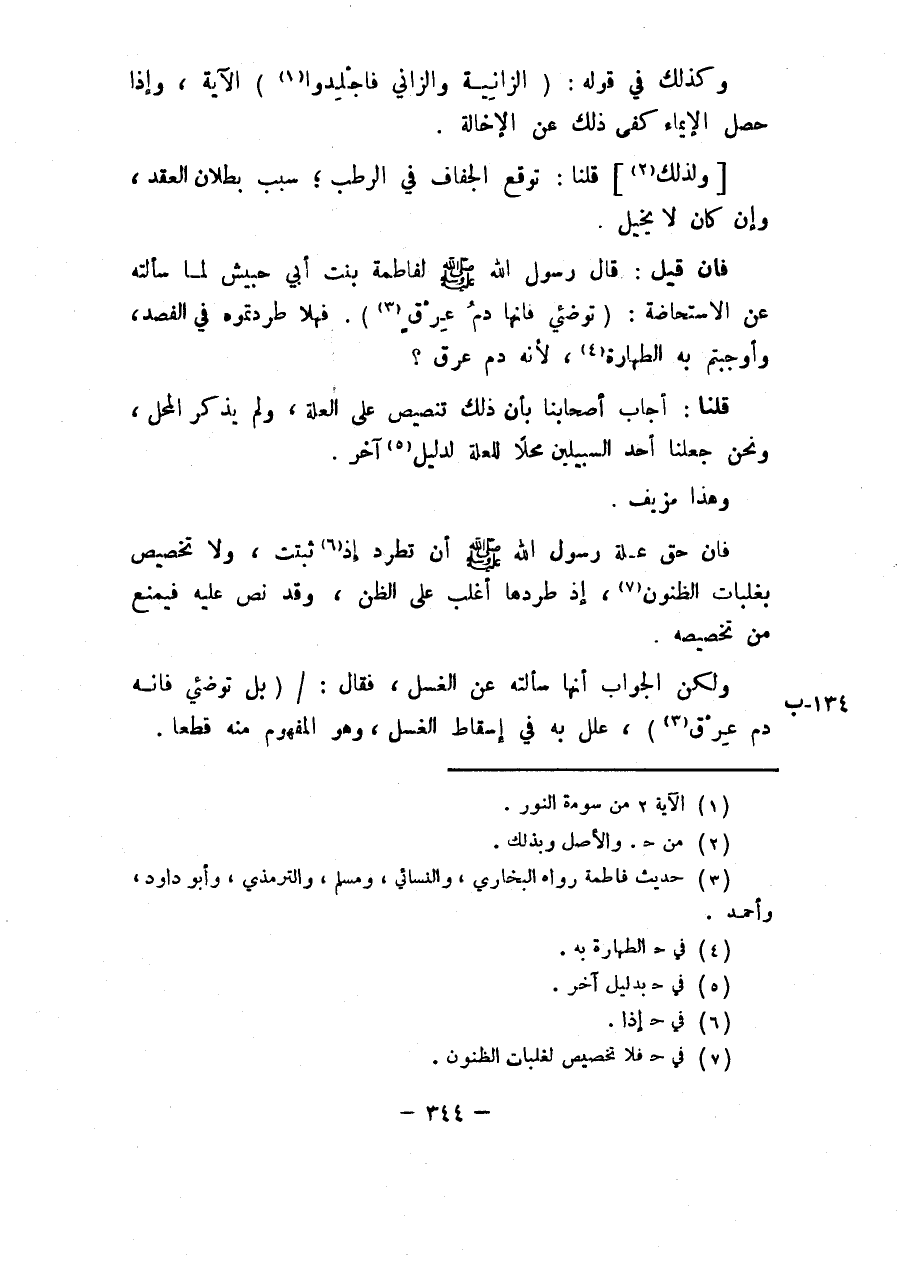 وكذلك في قوله : ( الزانِيـة والزاني فاجْلِدوا(١) ) الآية ، وإذا
حصل الإيماء كفى ذلك عن الإخالة .
[ ولذلك(٢) ] قلنا : توقع الجفاف في الرطب ؛ سبب بطلان العقد ،
وإن كان لا يخيل .
فان قيل : قال رسول الله ﷺ لفاطمة بنت أبي حبيش لمـا سألته
عن الاستحاضة : ( توضئي فانها دمُ عِرْقٍ(٣) ) . فهلا طردتموه في الفصد،
وأوجبتم به الطهارة(٤) ، لأنه دم عرق ؟
قلنا : أجاب أصحابنا بأن ذلك تنصيص على العلة ، ولم يذكر المحل ،
ونحن جعلنا أحد السبيلين محلًا للعلة لدليل(٥) آخر .
وهذا مزيف .
فان حق عـلة رسول الله ﷺ أن تطرد إذ(٦) ثبتت ، ولا تخصيص
بغلبات الظنون(٧) ، إذ طردها أغلب على الظن ، وقد نص عليه فيمنع
من تخصيصه .
ولكن الجواب أنها سألته عن الغسل ، فقال : / ( بل توضئي فانـه
١٣٤-ب
دم عِرْق(٣) ) ، علل به في إسقاط الغسل ، وهو المفهوم منه قطعا .
(١) الآية ٢ من سورة النور .
(٢) من حـ . والأصل وبذلك .
(٣) حديث فاطمة رواه البخاري ، والنسائي ، ومسلم ، والترمذي ، وأبو داود ،
وأحمـد .
(٤) في حـ الطهارة به .
(٥) في حـ بدليل آخر .
(٦) في حـ إذا .
(٧) في حـ فلا تخصيص لغلبات الظنون .
— ٣٤٤ —